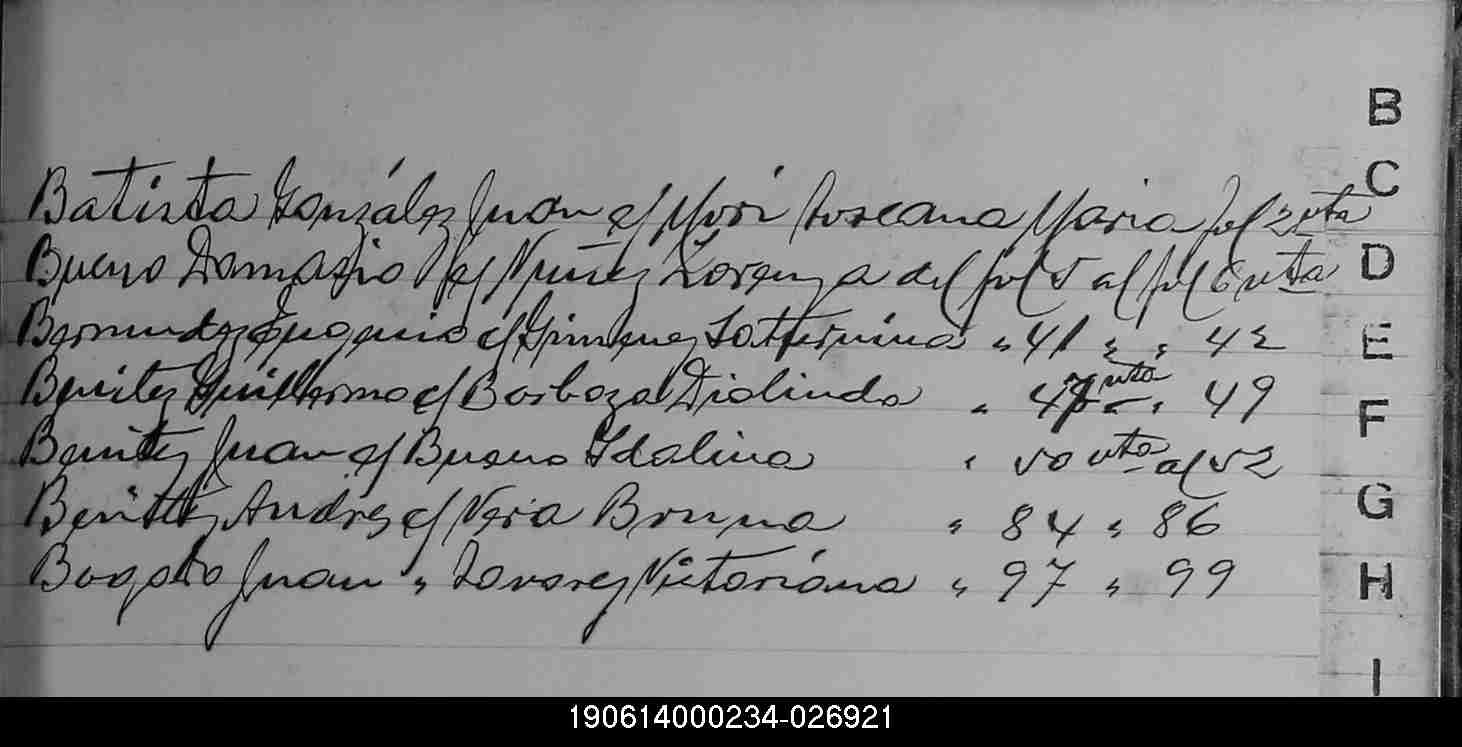 Batista González Juan c/ Mori Toscana Maria fol 2 vta
Bueno Damasio c/ Nuñez Lorenza del fol 5 al fol 6 vta
Bermudez Eugenio c/ Gimenez Saturnina " 41 " " 42
Benitez Guillermo c/ Barboza Diolinda " 47 vta " 49
Benitez Juan c/ Bueno Idalina " 50 vta al 52
Benitez Andres c/ Vera Bruna " 84 " 86
Bogado Juan " Tavarez Victoriana " 97 " 99
B
C
D
E
F
G
H
I
190614000234-026921